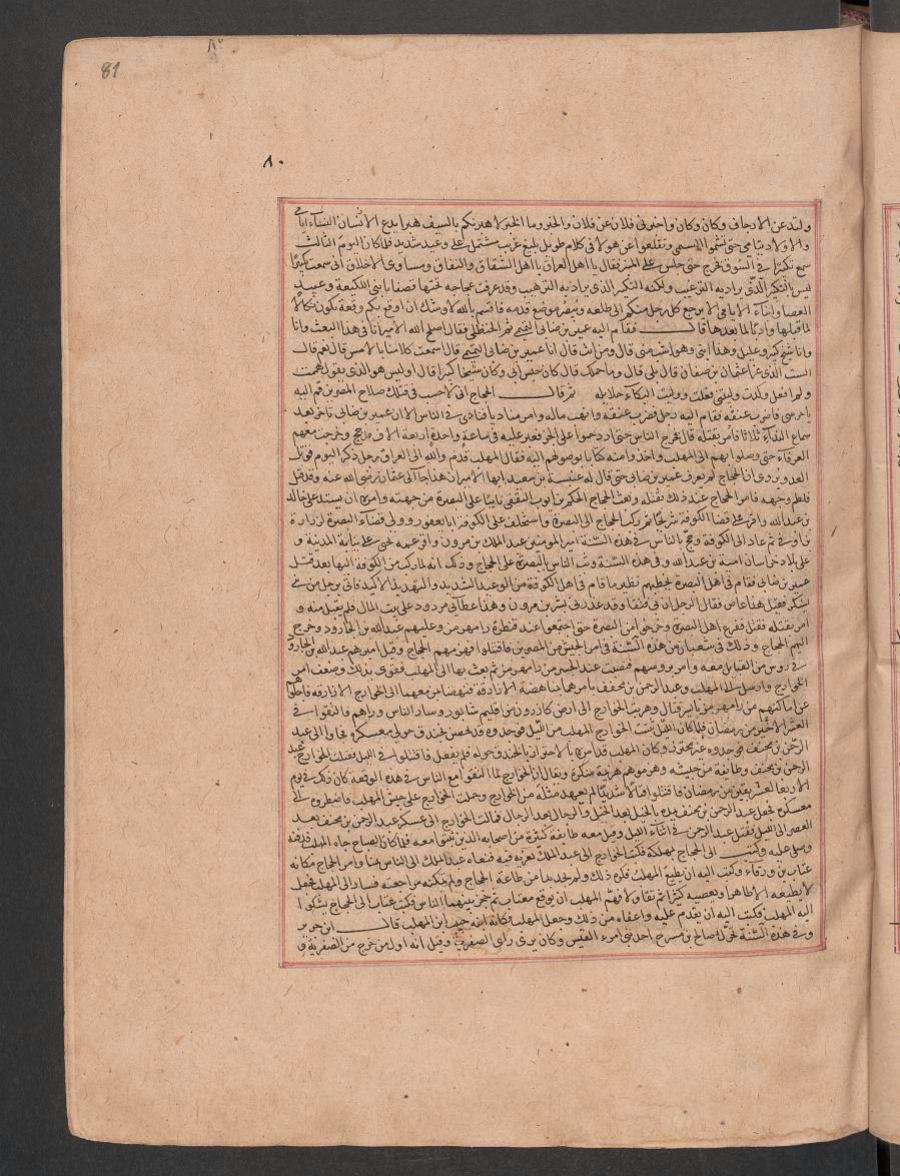 81
٨٠
ولتدعن الارجاف وكان وكان واخبرني فلان عن فلان والخبر وما الخبر لاهبرنكم بالسيف هبرا يدع الانسان النساء ايامى
والاولاد يتامى حتى تمشوا السمهى وتقلعوا عن هولا في كلام طويل بليغ غريب مشتمل على وعيد شديد فلما كان اليوم الثالث
سمع تكبيرا في السوق فخرج حتى جلس على المنبر فقال يا اهل العراق يا اهل الشقاق والنفاق ومساوى الاخلاق انى سمعت تكبيرا
ليس بالتكبير الذى يراد به الترغيب ولكنه التكبير الذى يراد به الترهيب وقد عرفت عجاجة تحتها قصف يا بنى اللكيعة وعبيد
العصا وابناء الايامى الا يرجع كل رجل منكم الى ظلعه ويبصر موضع قدمه فاقسم بالله لاوشك ان اوقع بكم وقعة تكون نكالا
لما قبلها وادبا لما بعدها قال فقام اليه عمير بن ضابى التميمى ثم الحنظلى فقال اصلح الله الامير انا في هذا البعث وانا
وانا شيخ كبير وعليل وهذا ابنى وهو اشب منى قال ومن انت قال انا عمير بن ضابى التميمى قال اسمعت كلامنا بالامس قال نعم قال
الست الذى غزا عثمان بن عفان قال بلى قال وما حملك قال كان حبس ابى وكان شيخا كبيرا قال اوليس هو الذى يقول هممت
ولم افعل وكدت وليتنى فعلت ووليت البكاء حلايله ثم قال الحجاج انى لاحسب في قتلك صلاح المصرين قم اليه
يا حرسى فاضرب عنقه فقام اليه رجل فضرب عنقه وانهب ماله وامر مناديا فنادى في الناس الا ان عمير بن ضابى تاخر بعد
سماع النداء ثلاثا فامر بقتله قال فخرج الناس حتى ازدحموا على الجسر فعبر عليه في ساعة واحدة اربعة الاف من مذحج وخرجت معهم
العرفاء حتى وصلوا بهم الى المهلب واخذوا منه كتابا بوصولهم اليه فقال المهلب قدم والله الى العراق رجل ذكر اليوم قوتل
العدو ويروى ان الحجاج لم يعرف عمير بن ضابى حتى قال له عنبسة بن سعيد ايها الامير ان هذا جا الى عثمان رضى الله عنه وقد قتل
فلطم وجهه فامر الحجاج عند ذلك بقتله وبعث الحجاج الحكم بن ايوب الثقفى نايبا على البصرة من جهته وامره ان يشتد على خالد
بن عبد الله واقر على قضا الكوفة شريحا ثم ركب الحجاج الى البصرة واستخلف على الكوفة ابا يعفور وولى قضاء البصرة لزرارة
بن اوفى ثم عاد الى الكوفة وحج بالناس في هذه السنة امير المومنين عبد الملك بن مروان واقر عمه يحيى على نيابة المدينة و
على بلاد خراسان امية بن عبد الله وفي هذه السنة وثب الناس بالبصرة على الحجاج وذلك انه لما ركب من الكوفة اليها بعد قتل
عمير بن ضابى فقام في اهل البصرة يخطبهم نظير ما قام في اهل الكوفة من الوعيد الشديد والتهديد الاكيد فاتى برجل من بنى
يشكر فقيل هذا عاص فقال الرجل ان بى فتقا وقد عذرنى بشر بن مروان وهذا عطائى مردود على بيت المال فلم يقبل منه و
امر بقتله فقتل ففزع اهل البصرة وخرجوا من البصرة حتى اجتمعوا عند قنطرة رامهرمز وعليهم عبد الله بن الجارود وخرج
اليهم الحجاج وذلك في شعبان من هذه السنة في امراء الجيش من المصرين فاقتتلوا فهزمهم الحجاج وقتل اميرهم عبد الله بن الجارود
في روس من القبايل معه وامر بروسهم فنصبت عند الجسر من رامهرمز ثم بعث بها الى المهلب فقوى بذلك وضعف امر
الخوارج وارسل الى المهلب وعبد الرحمن بن مخنف يامرهما بمناهضة الازارقة فنهضا بمن معهما الى الخوارج الازارقة فاجلوهم
عن اماكنهم من رامهرمز بايسر قتال وهربت الخوارج الى ارض كازرون من اقليم شابور وسار الناس وراهم فالتقوا في
العشر الاخير من رمضان فلما كان الليل بيت الخوارج المهلب من الليل فوجدوه قد تحصن بخندق حول معسكره فجاوا الى عبد
الرحمن بن مخنف فوجدوه غير محترز وكان المهلب قد امره بالاحتراز بالخندق حوله فلم يفعل فاقتتلوا في الليل فقتلت الخوارج عبد
الرحمن بن مخنف وطايفة من جيشه وهزموهم هزيمة منكرة ويقال ان الخوارج لما التقوا مع الناس في هذه الوقعة كان ذلك في يوم
الاربعا لعشر بقين من رمضان فاقتتلوا قتالا شديدا لم يعهد مثله من الخوارج وحملت الخوارج على جيش المهلب فاضطروه الى
معسكره فجعل عبد الرحمن بن مخنف يمده بالخيل بعد الخيل والرجال بعد الرجال فمالت الخوارج الى عسكر عبد الرحمن بن مخنف بعد
العصر الى الليل فقتل عبد الرحمن في اثناء الليل وقتل معه طايفة كثيرة من اصحابه الذين ثبتوا معه فلما كان الصباح جاء المهلب فدفنه
وصلى عليه وكتب الى الحجاج بمهلكه فكتب الحجاج الى عبد الملك يعزيه فيه فنعاه عبد الملك الى الناس بمنا وامر الحجاج مكانه
عتاب بن ورقاء وكتب اليه ان يطيع المهلب فكره ذلك ولم يجد بدا من طاعة الحجاج ولم يمكنه مراجعته فسار الى المهلب فجعل
لا يطيعه الا ظاهرا ويعصيه كثيرا ثم تقاولا فهم المهلب ان يوقع بعتاب ثم حجز بينهما الناس فكتب عتاب الى الحجاج يشكوا
اليه المهلب فكتب اليه ان يقدم عليه واعفاه من ذلك وجعل المهلب مكانه ابنه حبيب ابن المهلب قال ابن جرير
وفي هذه السنة تحرك صالح بن مسرح احد بنى امرء القيس وكان يرى راى الصفرية وقيل انه اول من خرج من الصفرية و